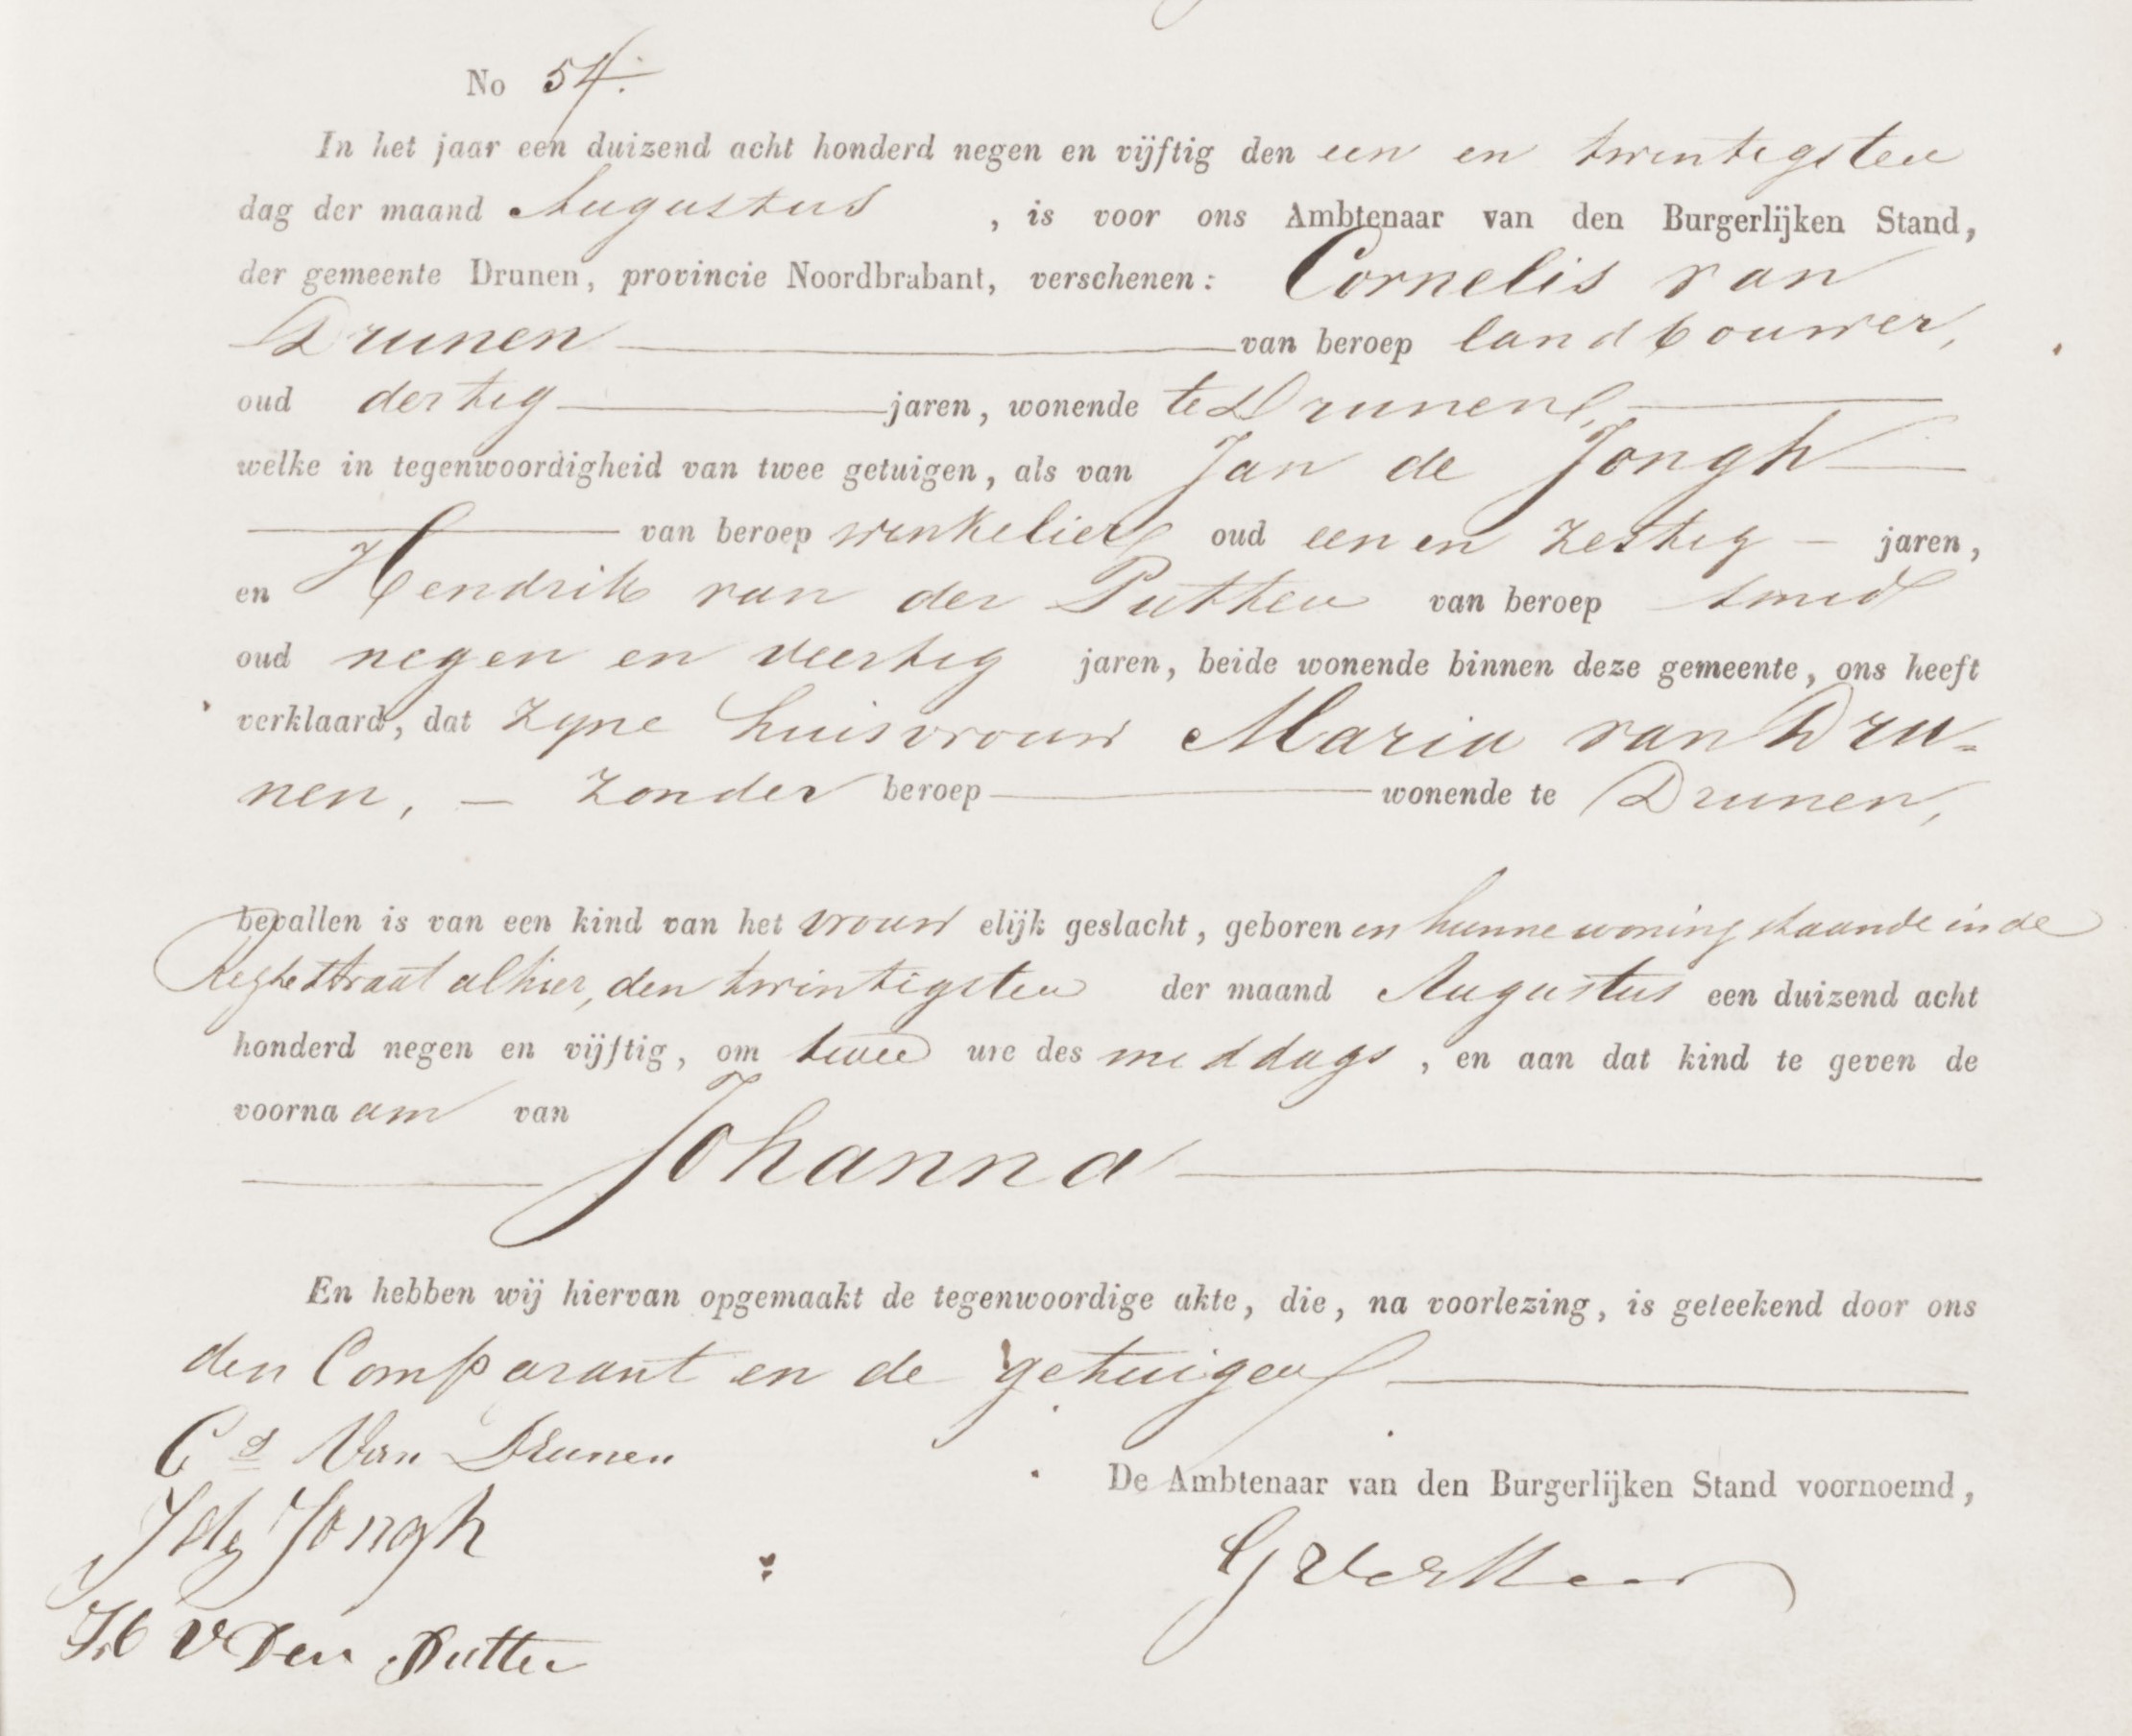 No 54.
In het jaar een duizend acht honderd negen en vijftig den een en twintigsten
dag der maand Augustus , is voor ons Ambtenaar van den Burgerlijken Stand,
der gemeente Drunen, provincie Noordbrabant, verschenen: Cornelis van
Drunen van beroep landbouwer,
oud dertig jaren, wonende te Drunen,
welke in tegenwoordigheid van twee getuigen, als van Jan de Jongh
van beroep winkelier oud een en zestig – jaren,
en Hendrik van der Putten van beroep smid
oud negen en veertig jaren, beide wonende binnen deze gemeente, ons heeft
verklaard, dat zyne huisvrouw Maria van Dru-
nen, – zonder beroep wonende te Drunen,
bevallen is van een kind van het vrouw elijk geslacht, geboren in hunne woning staande in de
alhier, den twintigsten der maand Augustus een duizend acht
honderd negen en vijftig, om twee ure des middags , en aan dat kind te geven de
voorna am van
Johanna
En hebben wij hiervan opgemaakt de tegenwoordige akte, die, na voorlezing, is geteekend door ons
den Comparant en de getuigen
Cs Van Drunen
De Ambtenaar van den Burgerlijken Stand voornoemd,
Jongh
H V Den Putten